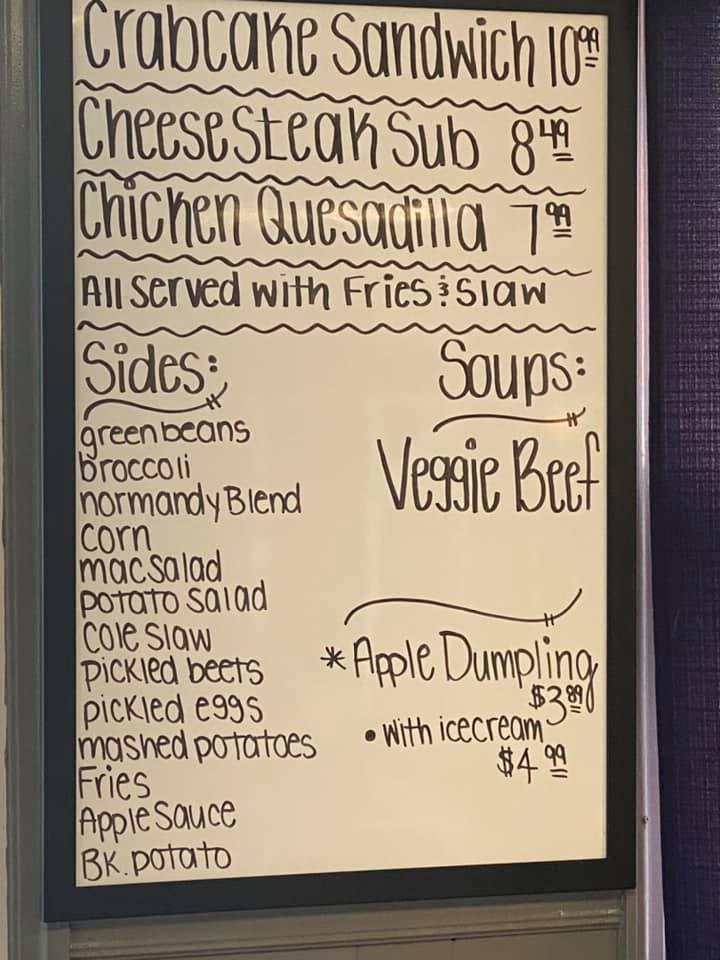 Crabcake Sandwich 10.99
Cheesesteak Sub 8.49
Chicken Quesadilla 7.99
All Served with Fries & Slaw
Sides:
green beans
broccoli
normandy Blend
corn
mac salad
potato salad
Cole slaw
pickled beets
pickled eggs
mashed potatoes
Fries
Apple Sauce
BK. potato
Soups:
Veggie Beef
* Apple Dumpling
$3.89
• with icecream
$4.99